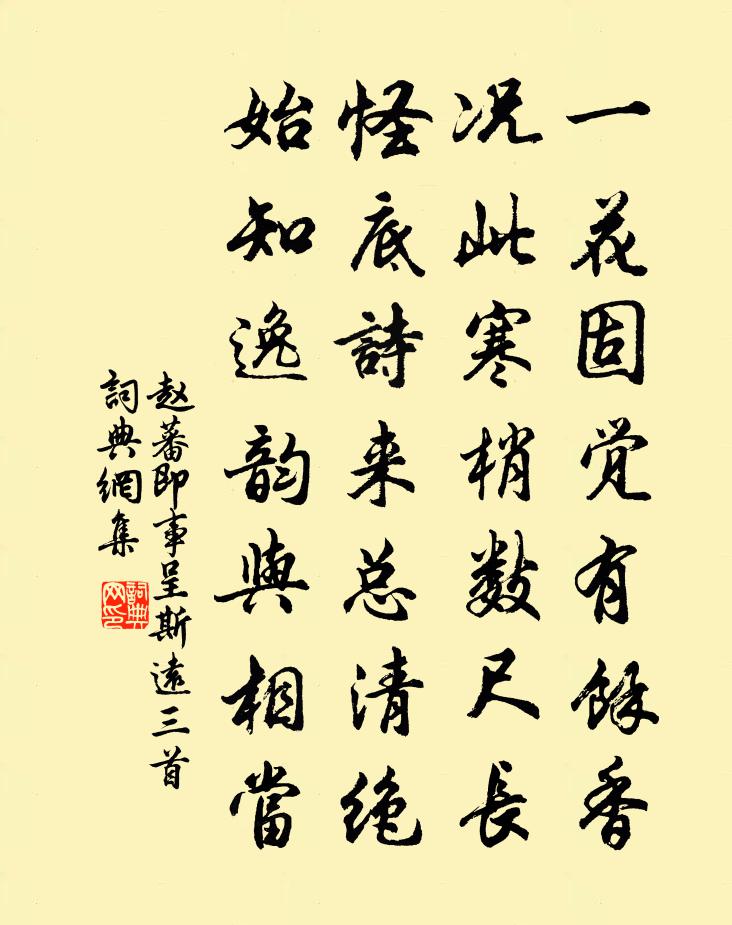 一花固觉有餘香
况此寒梢数尺長
怪底詩来总清绝
始知逸韵與相當
赵蕃即事呈斯遠三首
詞典網集
詞典网印